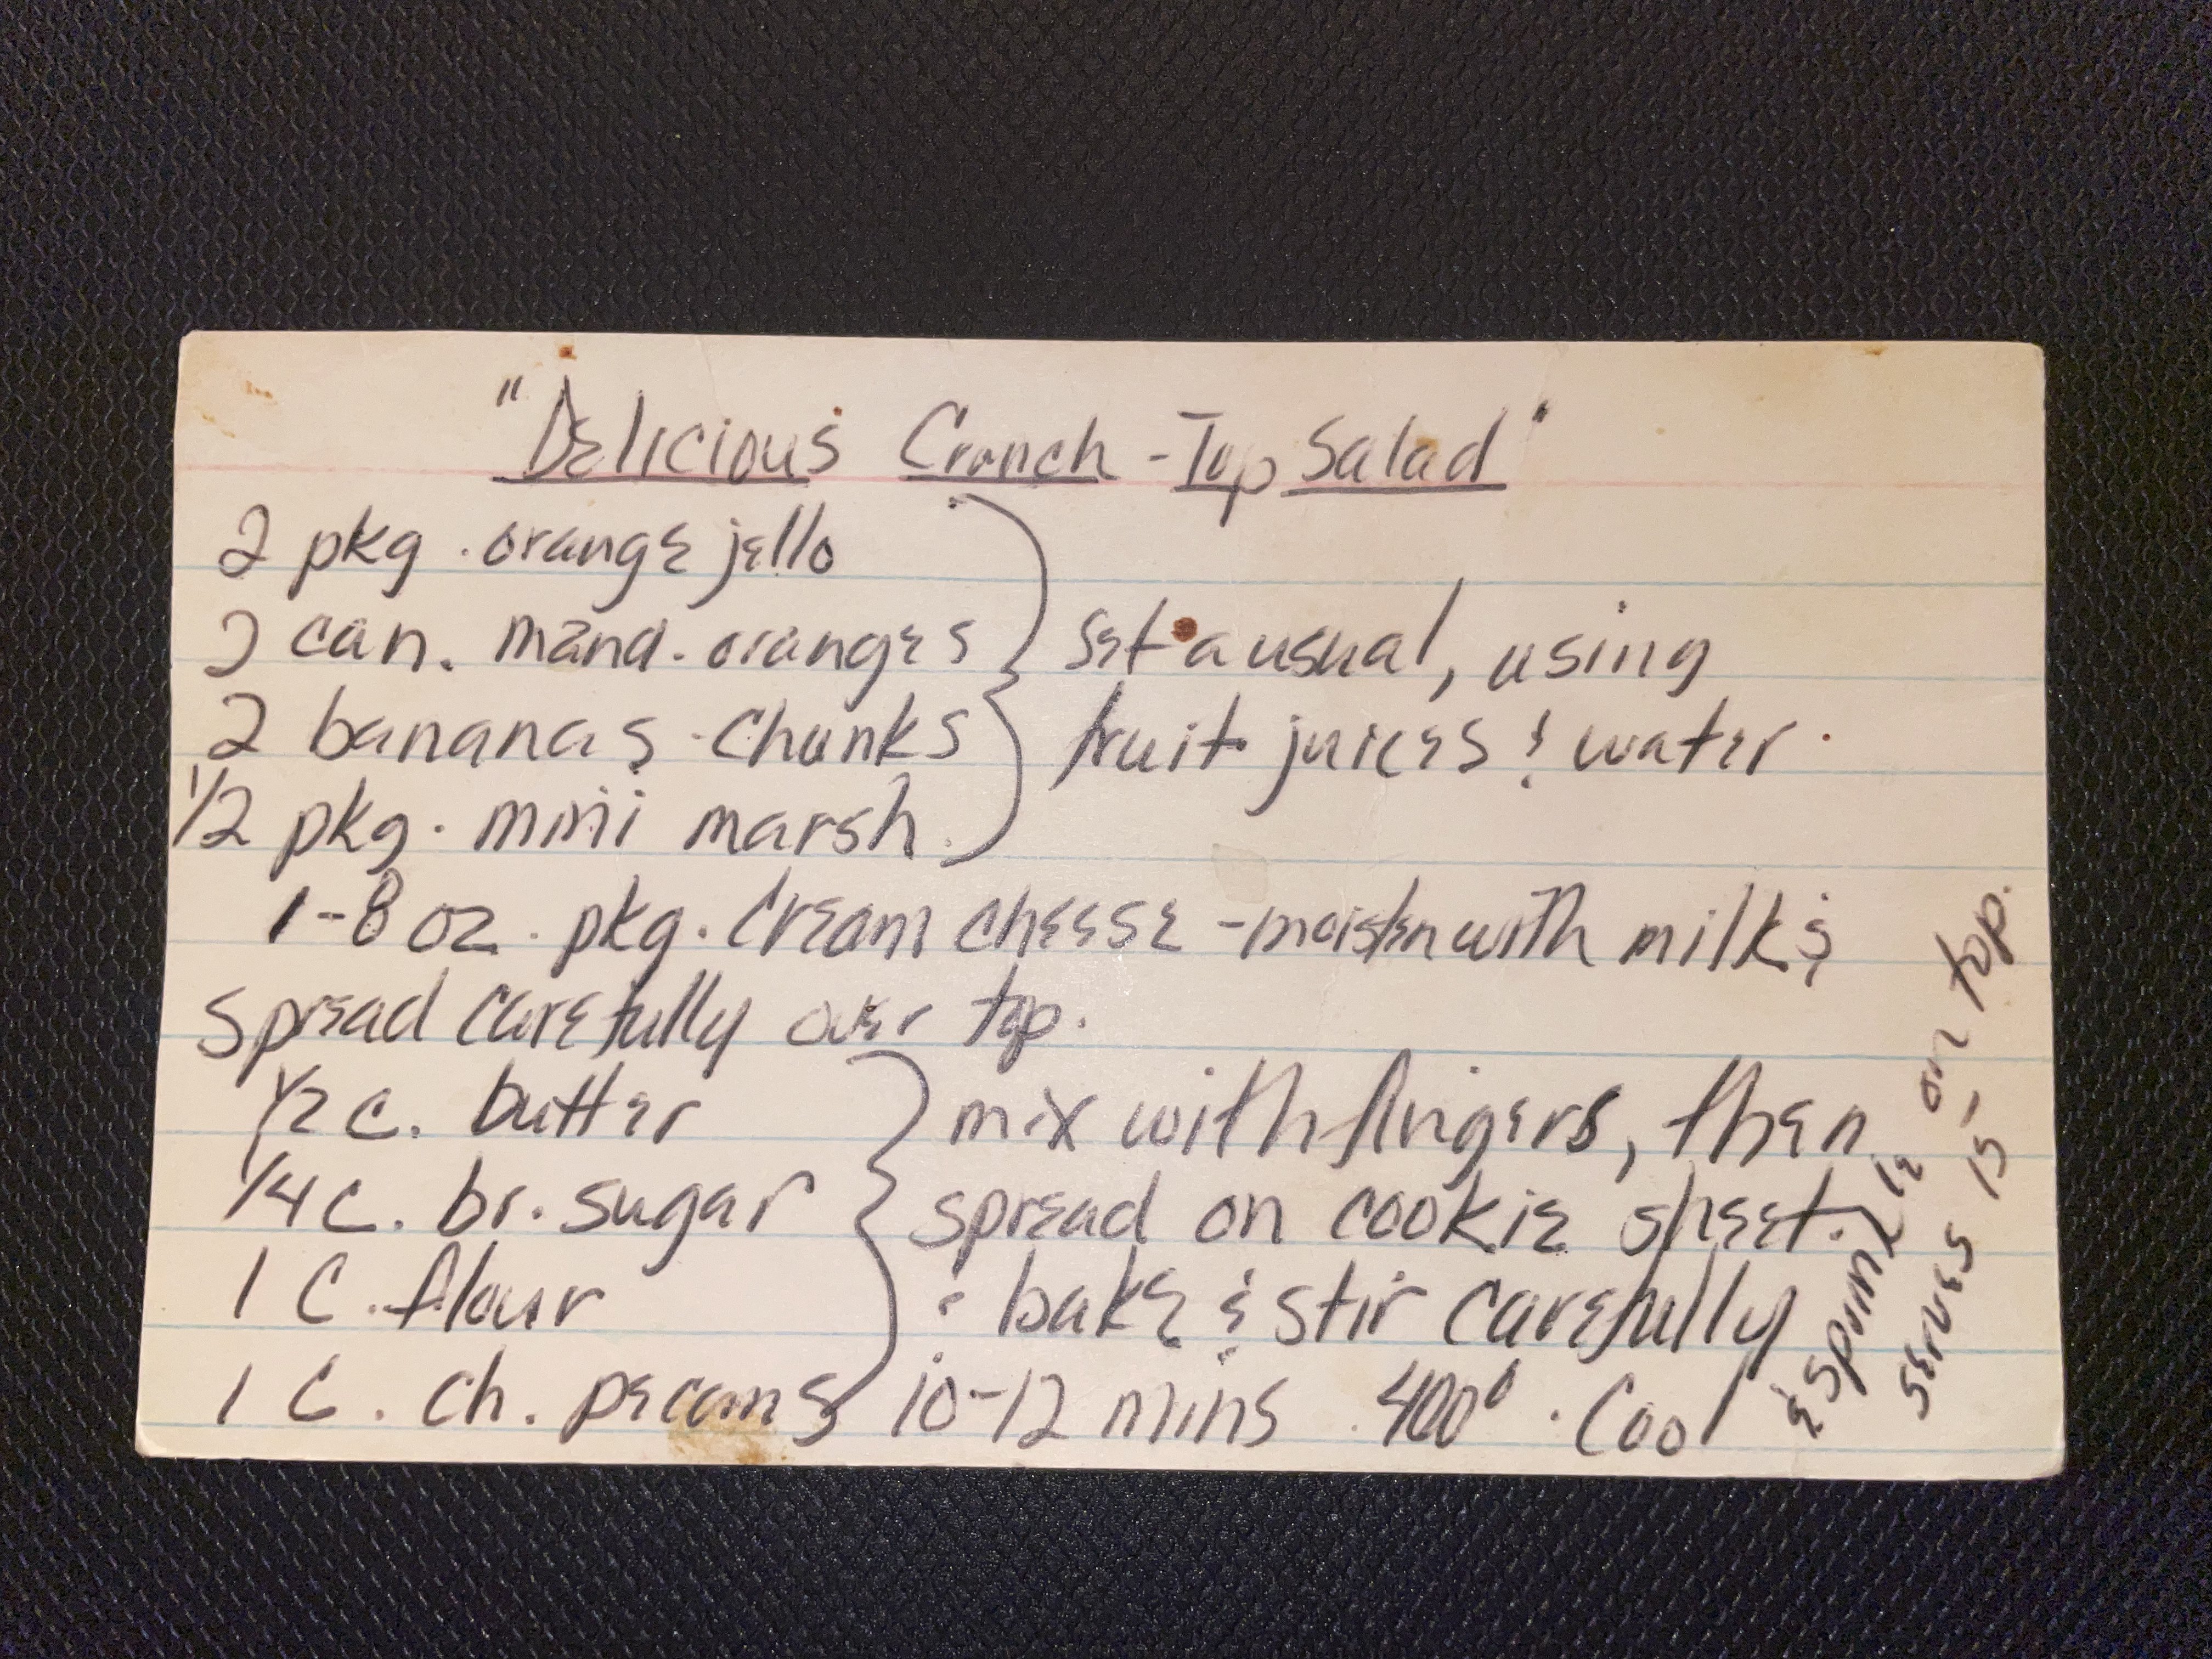 "Delicious Crunch-Top Salad"
2 pkg. orange jello
2 can. mand. oranges
2 bananas - chunks
1/2 pkg. mini marsh.
set a usual, using
fruit juices & water.
1-8 oz. pkg. cream cheese - moisten with milk &
spread carefully over top.
1/2 c. butter
1/4 c. br. sugar
1 C. flour
1 C. ch. pecans
mix with fingers, then
spread on cookie sheet.
bake & stir carefully
10-12 mins. 400°. Cool
& sprinkle on top.
serves 15-